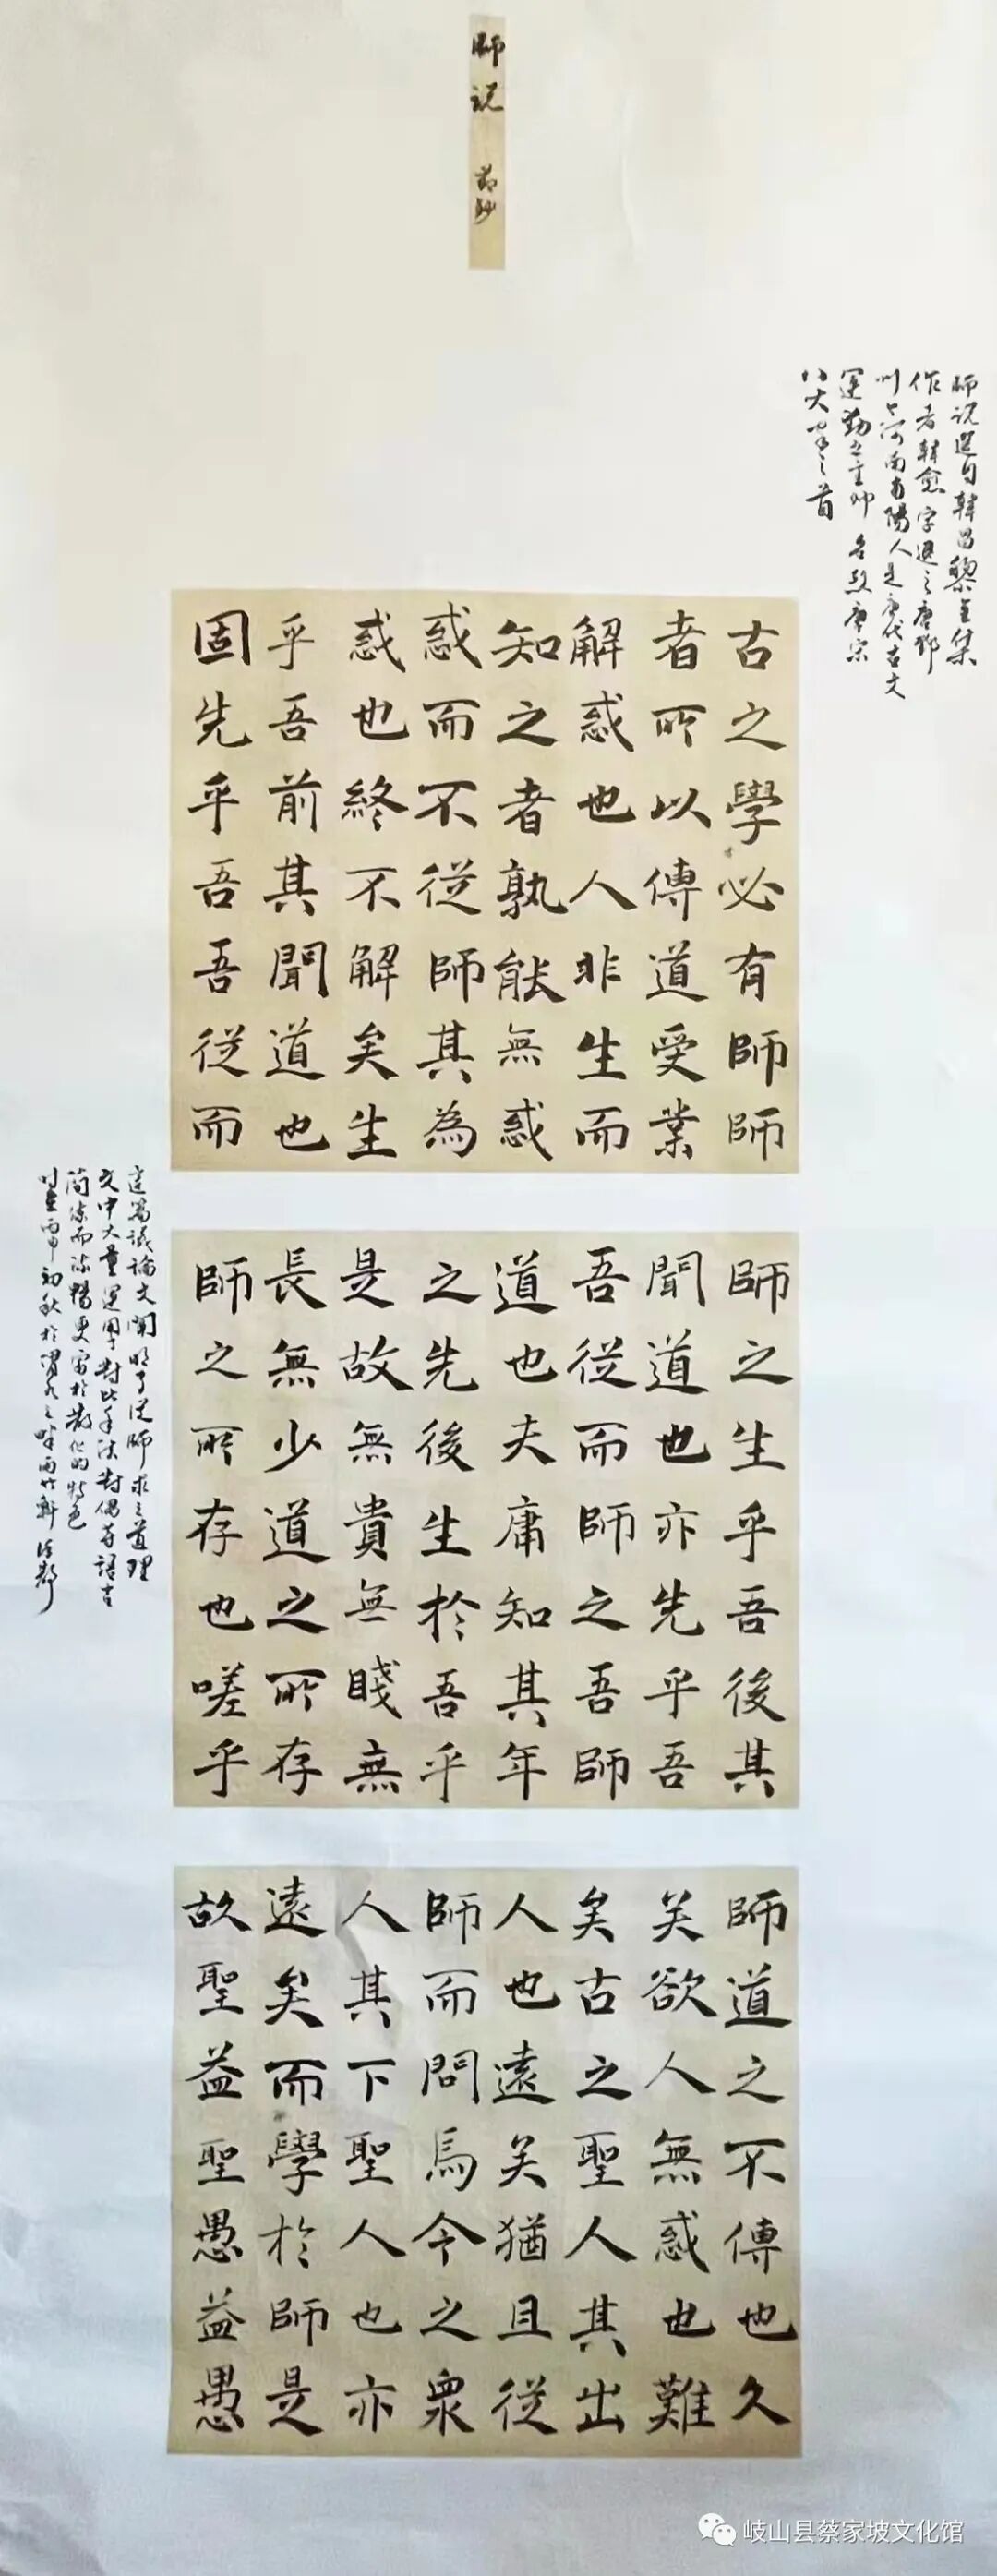 師说 节鈔
师说選自韓昌黎全集
作者韓愈字退之唐鄧
州今河南南陽人是唐代古文
運動之主帅名列唐宋
八大家之首
古之學必有師師
者所以傳道受業
解惑也人非生而
知之者孰能無惑
惑而不從師其為
惑也終不解矣生
乎吾前其聞道也
固先乎吾吾從而
師之生乎吾後其
聞道也亦先乎吾
吾從而師之吾師
道也夫庸知其年
之先後生於吾乎
是故無貴無賤無
長無少道之所存
師之所存也嗟乎
師道之不傳也久
矣欲人無惑也難
矣古之聖人其出
人也遠矣猶且從
師而問焉今之衆
人其下聖人也亦
遠矣而學於師是
故聖益聖愚益愚
這篇议論文闡明了從師求之道理
文中大量運用對比手法對偶等語言
简练而流暢更富於散化的特色
时丙申初秋於渭水之畔雨竹軒
岐山县蔡家坡文化馆